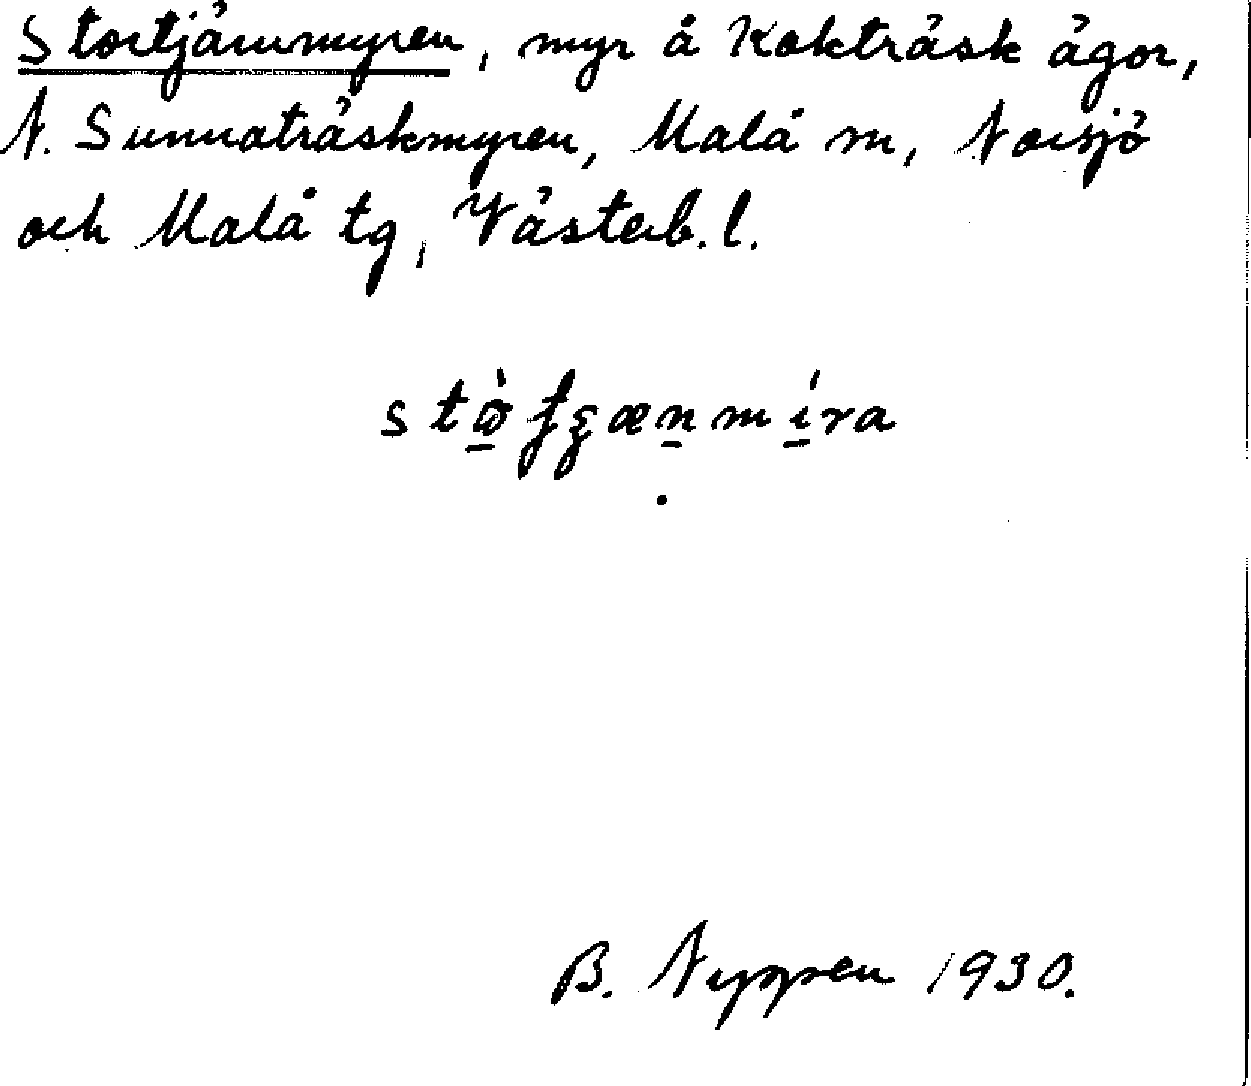 Stortjärnmyren, myr å Kokträsk ägor,
N. Sunnaträskmyren, Malå sn, Norsjö
och Malå tg, Västerb. l.
B. Nygren 1930.